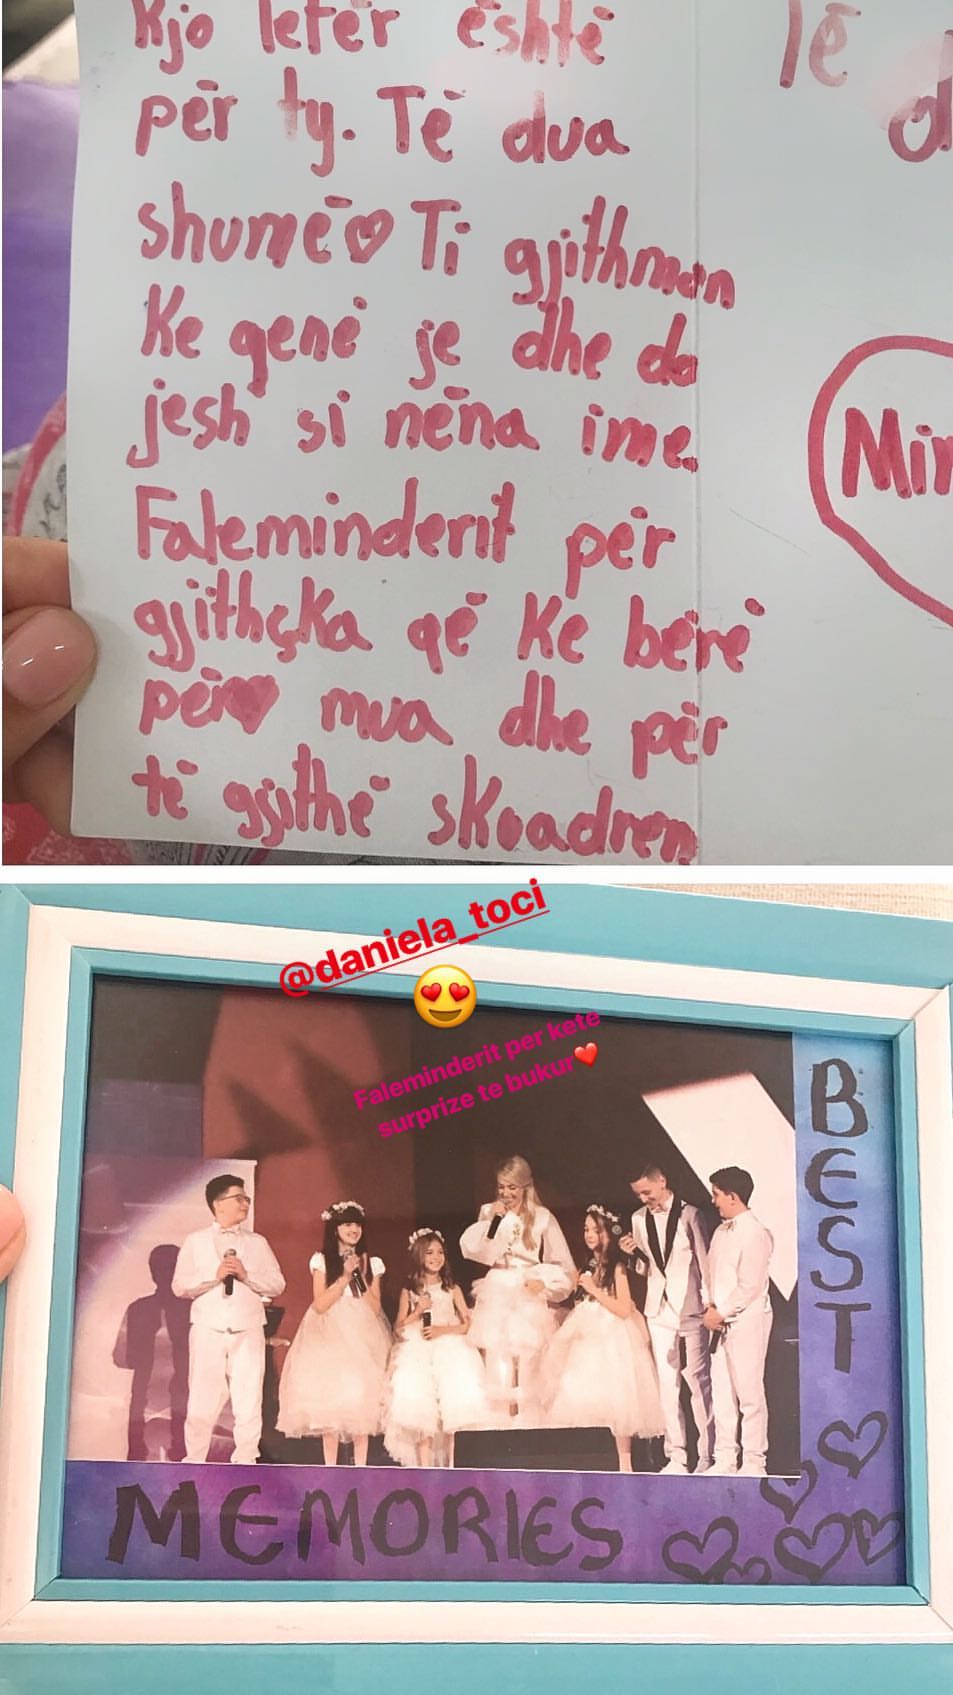 Kjo letër është
për ty. Të dua
shumë♡ Ti gjithmon
Ke qenë je dhe do
jesh si nëna ime.
Faleminderit për
gjithçka që Ke bërë
për♥ mua dhe për
të gjithë skuadren
Të
@daniela_toci
😍
Faleminderit per kete
surprize te bukur❤️
BEST
MEMORIES